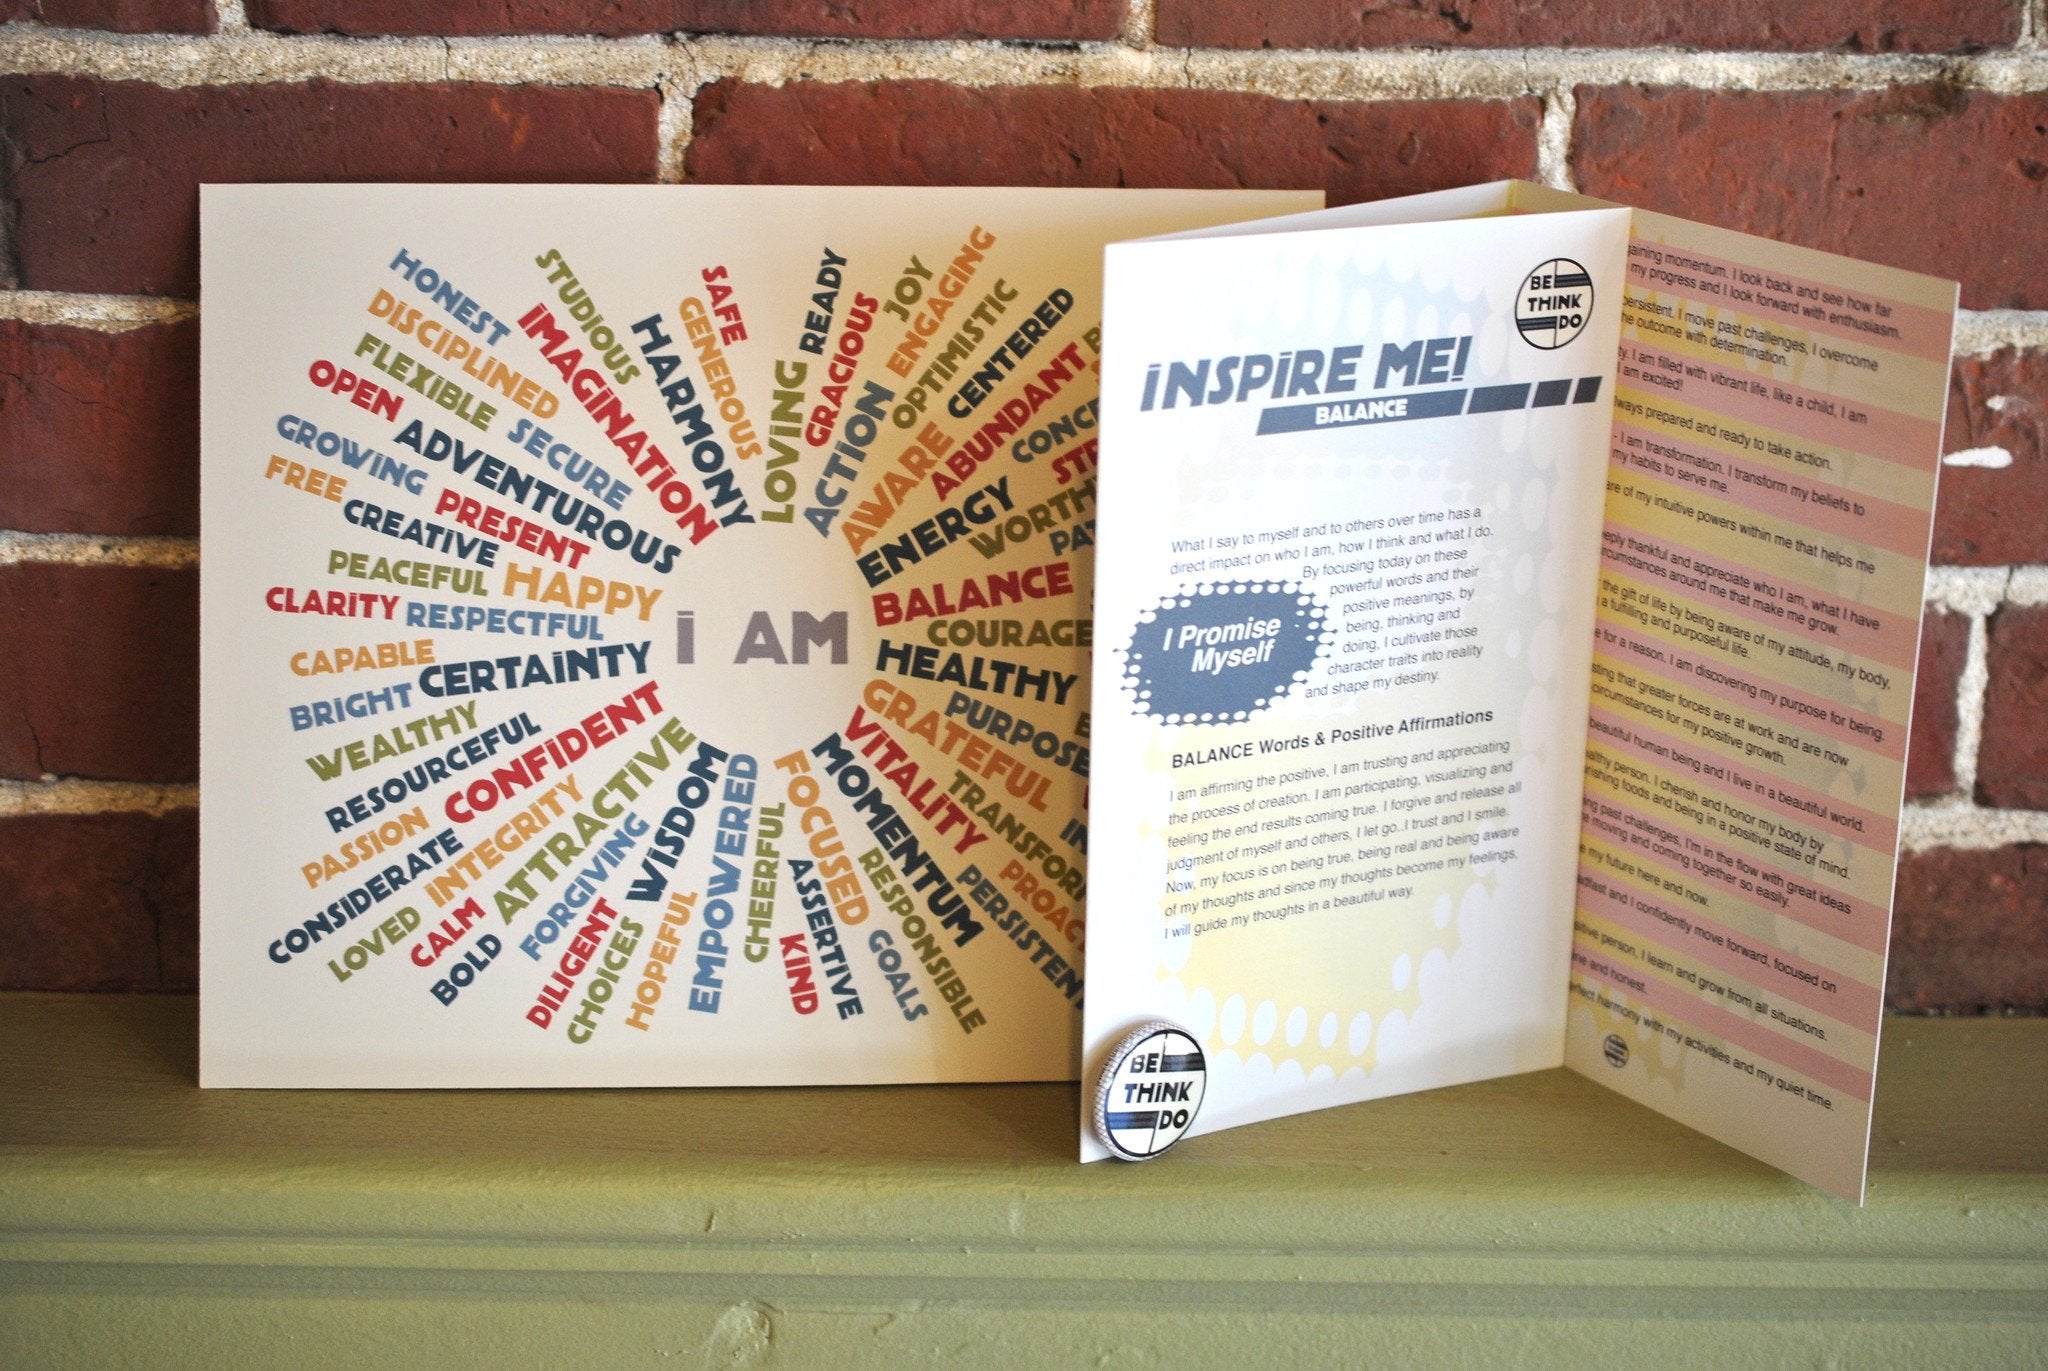 HONEST
DISCIPLINED
FLEXIBLE
OPEN
ADVENTUROUS
SECURE
GROWING
PRESENT
FREE
CREATIVE
PEACEFUL
HAPPY
CLARITY
RESPECTFUL
CAPABLE
CERTAINTY
BRIGHT
WEALTHY
RESOURCEFUL
CONFIDENT
PASSION
CONSIDERATE
INTEGRITY
LOVED
CALM
ATTRACTIVE
BOLD
FORGIVING
DILIGENT
CHOICES
WISDOM
HOPEFUL
EMPOWERED
CHEERFUL
KIND
ASSERTIVE
FOCUSED
GOALS
RESPONSIBLE
MOMENTUM
PERSISTENT
VITALITY
PROAC
TRANSFOR
GRATEFUL
PURPOSE
HEALTHY
COURAGE
BALANCE
WORTH
ENERGY
CONCE
ABUNDANT
AWARE
CENTERED
OPTIMISTIC
ENGAGING
JOY
ACTION
GRACIOUS
READY
LOVING
SAFE
GENEROUS
HARMONY
STUDIOUS
IMAGINATION
I AM
BE
THINK
DO
INSPIRE ME!
BALANCE
What I say to myself and to others over time has a
direct impact on who I am, how I think and what I do.
By focusing today on these
powerful words and their
positive meanings, by
being, thinking and
doing, I cultivate those
character traits into reality
and shape my destiny.
I Promise
Myself
BALANCE Words & Positive Affirmations
I am affirming the positive, I am trusting and appreciating
the process of creation. I am participating, visualizing and
feeling the end results coming true. I forgive and release all
judgment of myself and others, I let go..I trust and I smile.
Now, my focus is on being true, being real and being aware
of my thoughts and since my thoughts become my feelings,
I will guide my thoughts in a beautiful way.
BE
THINK
DO
gaining momentum. I look back and see how far
my progress and I look forward with enthusiasm.
persistent. I move past challenges, I overcome
the outcome with determination.
I am filled with vibrant life, like a child, I am
I am excited!
prepared and ready to take action.
- I am transformation. I transform my beliefs to
my habits to serve me.
of my intuitive powers within me that helps me
thankful and appreciate who I am, what I have
circumstances around me that make me grow.
the gift of life by being aware of my attitude, my body,
a fulfilling and purposeful life.
for a reason. I am discovering my purpose for being.
that greater forces are at work and are now
circumstances for my positive growth.
beautiful human being and I live in a beautiful world.
person. I cherish and honor my body by
foods and being in a positive state of mind.
past challenges, I'm in the flow with great ideas
moving and coming together so easily.
my future here and now.
and I confidently move forward, focused on
person, I learn and grow from all situations.
and honest.
harmony with my activities and my quiet time.